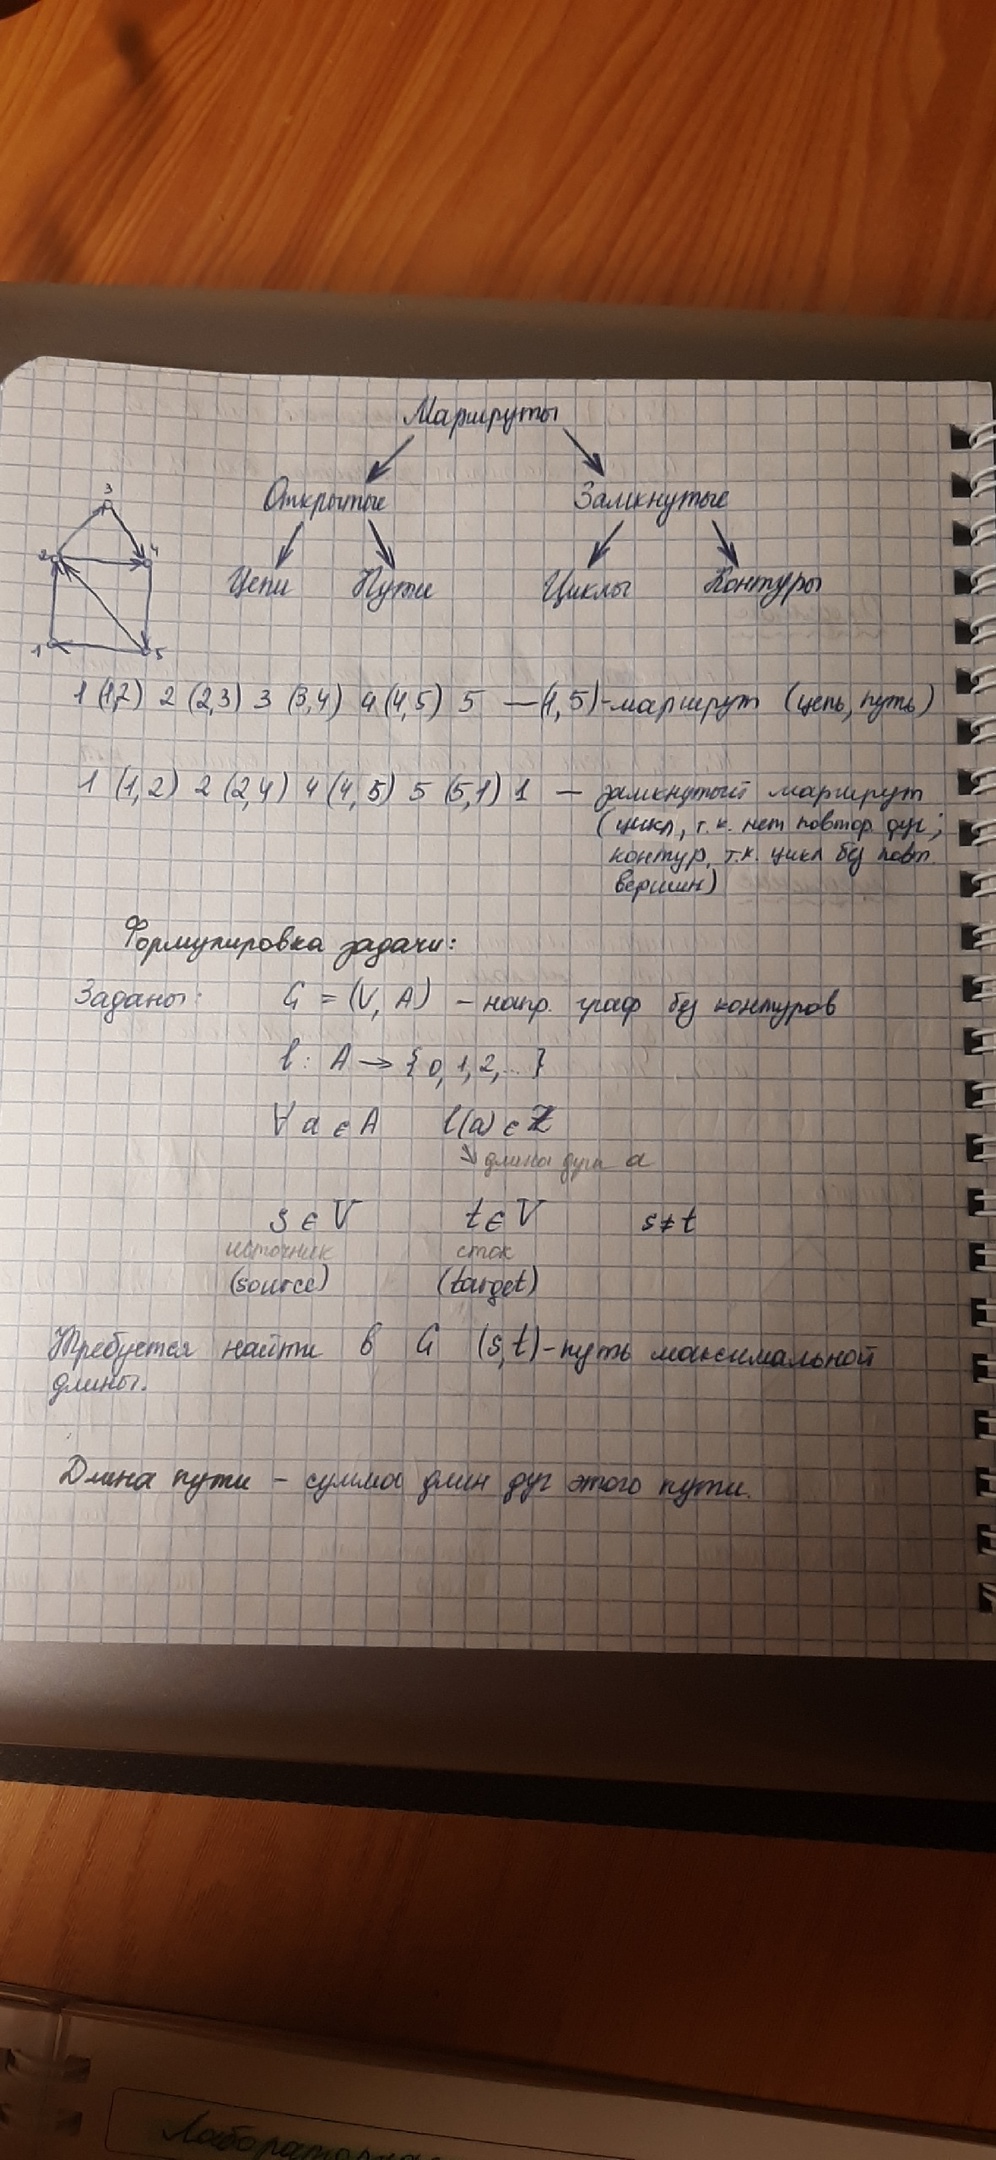 Маршруты
Открытые Замкнутые
Цепи Пути Циклы Контуры
3
2 4
1 5
1 (1,2) 2 (2,3) 3 (3,4) 4 (4,5) 5 — (1,5)-маршрут (цепь, путь)
1 (1,2) 2 (2,4) 4 (4,5) 5 (5,1) 1 — замкнутый маршрут
(цикл, т.к. нет повтор. дуг;
контур, т.к. цикл без повт.
вершин)
Формулировка задачи:
Заданы: G = (V, A) – напр. граф без контуров
l : A → {0, 1, 2, ... }
∀ a ∈ A l(a) ∈ Z
↘ длина дуги a
s ∈ V t ∈ V s ≠ t
источник сток
(source) (target)
Требуется найти в G (s,t)-путь максимальной
длины.
Длина пути – сумма длин дуг этого пути.